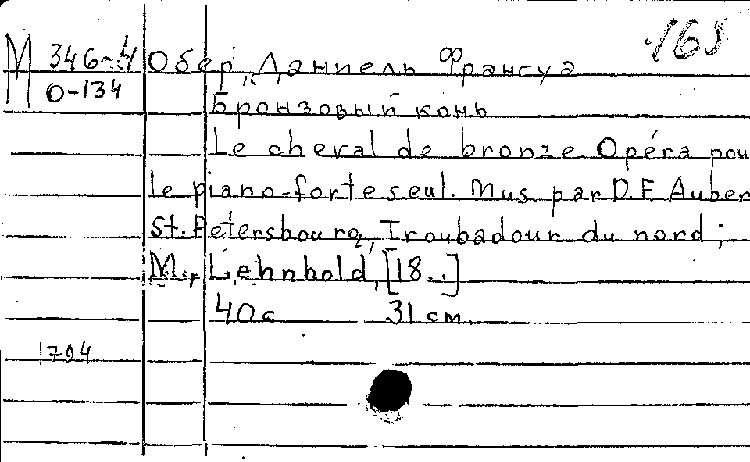 165
М 346-4 Обер, Даниель Франсуа
О-134
Бронзовый конь
Le cheval de bronze Opéra pou
le piano-forte seul. Mus par D.F. Auber
St. Petersbourg, Troubadour du nord;
M., Lehnhold, [18..]
40с 31 см.
1704